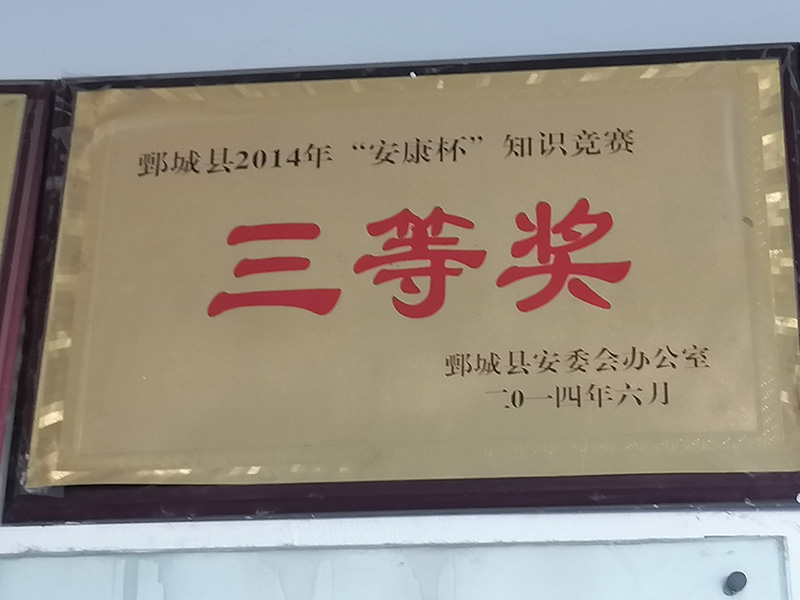 鄄城县2014年“安康杯”知识竞赛
三等奖
鄄城县安委会办公室
二0一四年六月